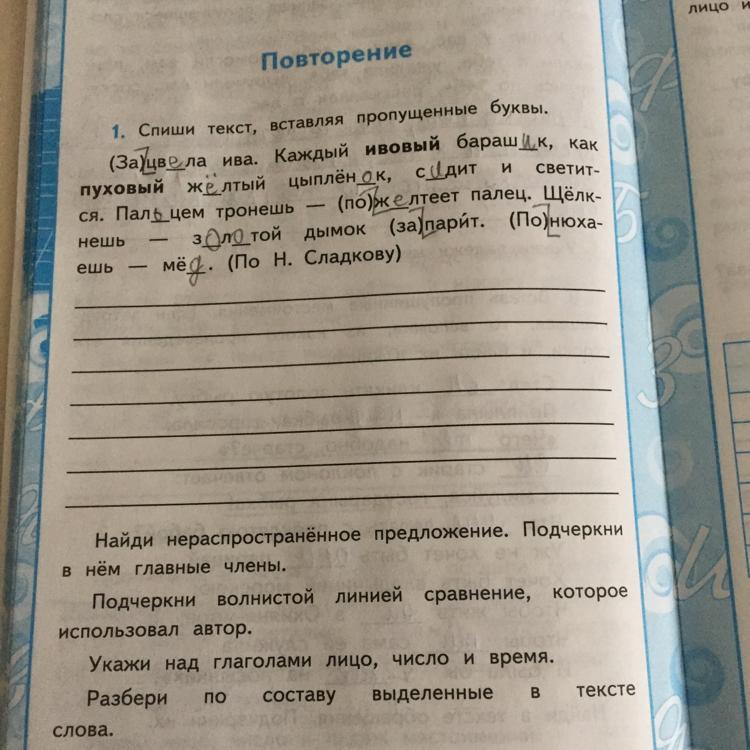 лицо и
Повторение
1. Спиши текст, вставляя пропущенные буквы.
(За)цвела ива. Каждый ивовый барашик, как
пуховый жёлтый цыплёнок, сидит и светит-
ся. Пальцем тронешь — (по)желтеет палец. Щёлк-
нешь — золотой дымок (за)пари́т. (По)нюха-
ешь — мёд. (По Н. Сладкову)
Найди нераспространённое предложение. Подчеркни
в нём главные члены.
Подчеркни волнистой линией сравнение, которое
использовал автор.
Укажи над глаголами лицо, число и время.
Разбери по составу выделенные в тексте
слова.